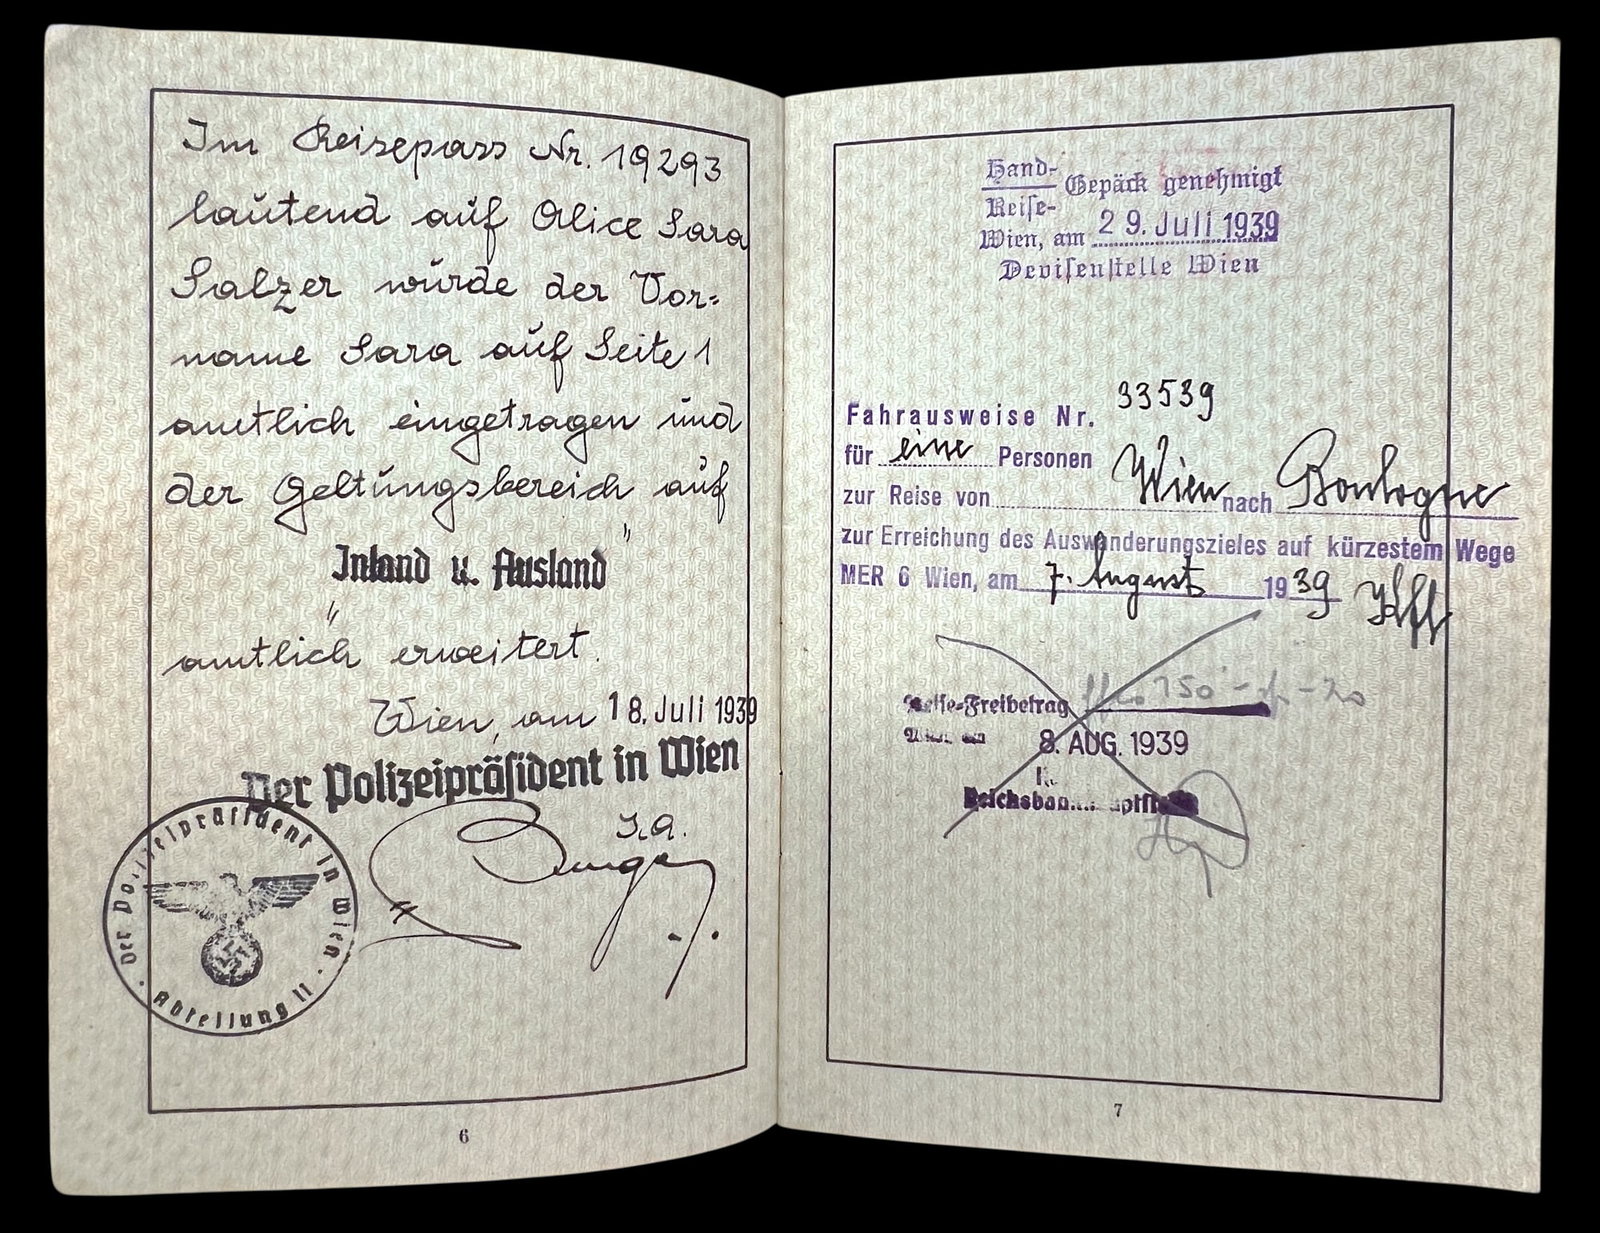 Im Reisepass Nr. 19293
lautend auf Alice Sara
Salzer wurde der Vor=
name Sara auf Seite 1
amtlich eingetragen und
der Geltungsbereich auf
" Inland u. Ausland "
amtlich erweitert.
Wien, am 18. Juli 1939
Der Polizeipräsident in Wien
I.A.
Der Polizeipräsident in Wien · Abteilung II ·
6
Hand-
Reise- Gepäck genehmigt
Wien, am 29. Juli 1939
Devisenstelle Wien
Fahrausweise Nr. 33539
für eine Personen
zur Reise von Wien nach Boulogne
zur Erreichung des Auswanderungszieles auf kürzestem Wege
MER 6 Wien, am 7. August 1939
Reise-Freibetrag
8. AUG. 1939
7